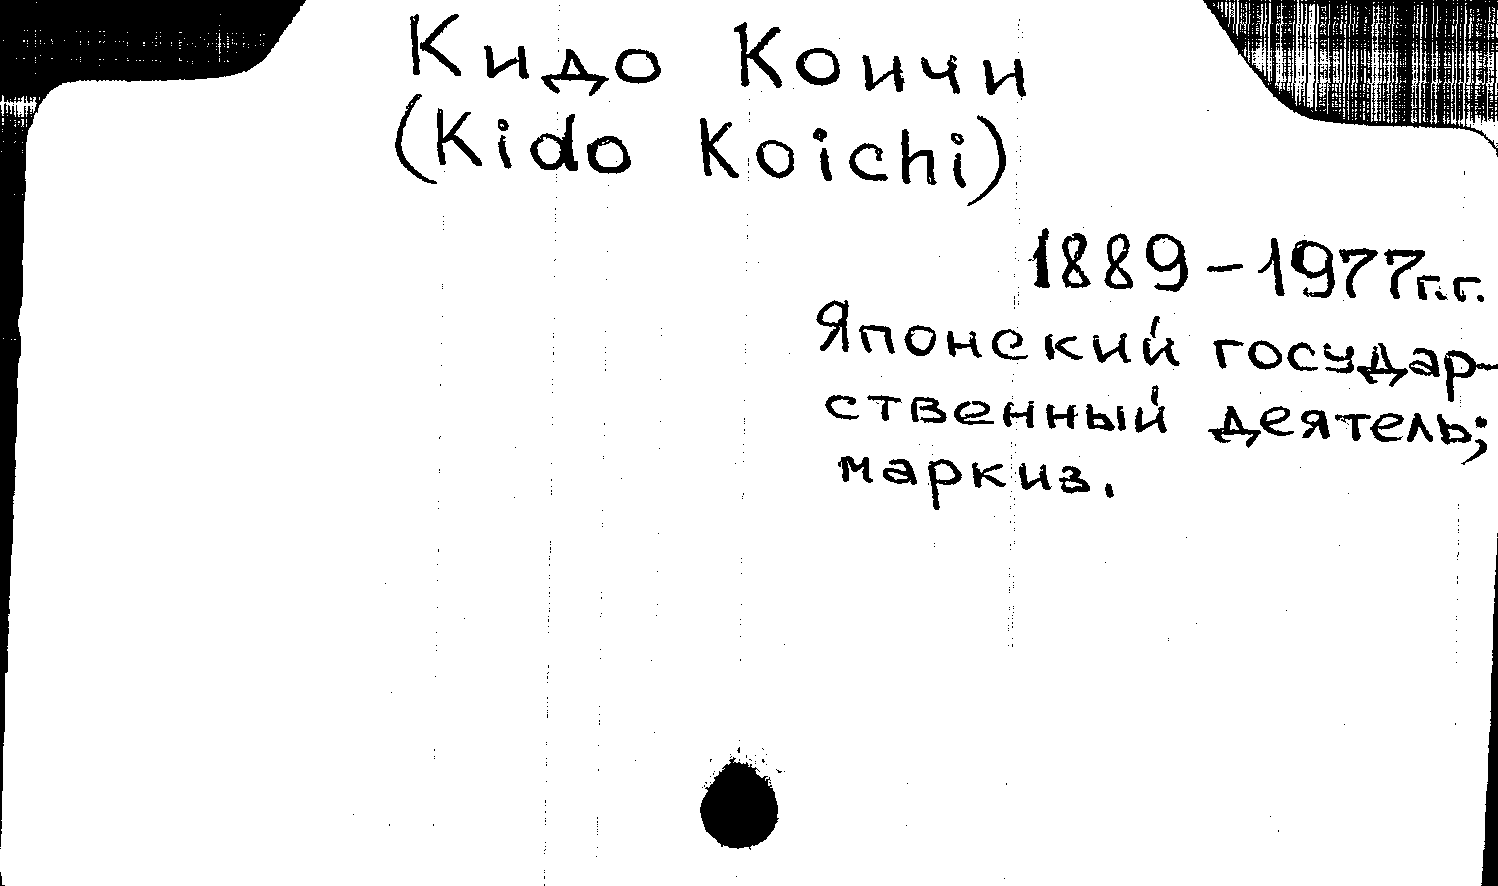 Кидо Коичи
(Kido Koichi)
1889-1977г.г.
Японский государ-
ственный деятель;
маркиз.